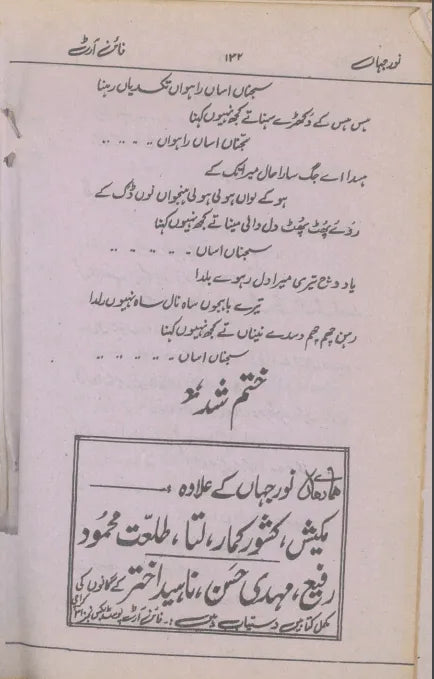 نور جہاں ۱۳۲ فائن آرٹ
سجناں اساں راہواں تکدیاں رہنا
ہس ہس کے دکھڑے سہناتے کجھ نہیوں کہنا
سجناں اساں راہواں ۔۔ ۔۔ ۔۔
ہسدا اے جگ سارا حال میرا تک کے
ہوکے نواں ہولی ہولی ہنجواں نوں ڈک کے
روئے پھٹ پھٹ دل دا ئی میناتے کجھ نہیوں کہنا
سجناں اساں ۔۔ ۔۔ ۔۔ ۔۔
یاد وچ تیری میرا دل رہوے بلدا
تیرے باہجوں ساہ نال ساہ نہیوں رلدا
رہن چھم چھم وسدے نیناں تے کجھ نہیوں کہنا
سجناں اساں ۔۔ ۔۔ ۔۔ ۔۔
ختم شد
ہمارے ہاں نور جہاں کے علاوہ :۔
مکیش، کشور کمار، لتا، طلعت محمود
رفیع، مہدی حسن، ناہید اختر کے گانوں کی
مکمل کتابیں دستیاب ہیں :۔ فائن آرٹ پوسٹ بکس نمبر کراچی